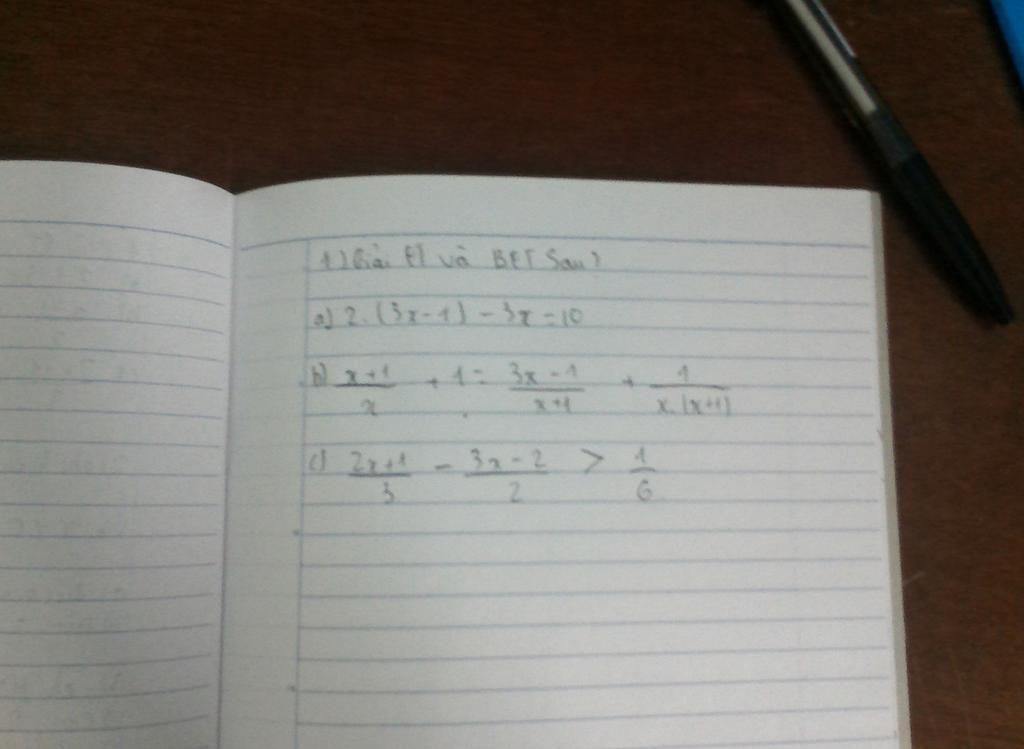 1) Giải PT và BPT Sau?
a) 2. (3x-1) - 3x = 10
b) \frac{x+1}{x} + 1 = \frac{3x-1}{x+1} + \frac{1}{x.(x+1)}
c) \frac{2x+1}{3} - \frac{3x-2}{2} > \frac{1}{6}